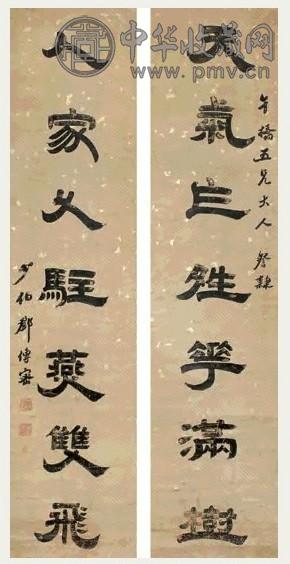 中华收藏网
www.pmv.cn
午橋五兄大人 詧隸
天氣乍夝華滿樹
人家久駐燕雙飛
少伯鄧傳密